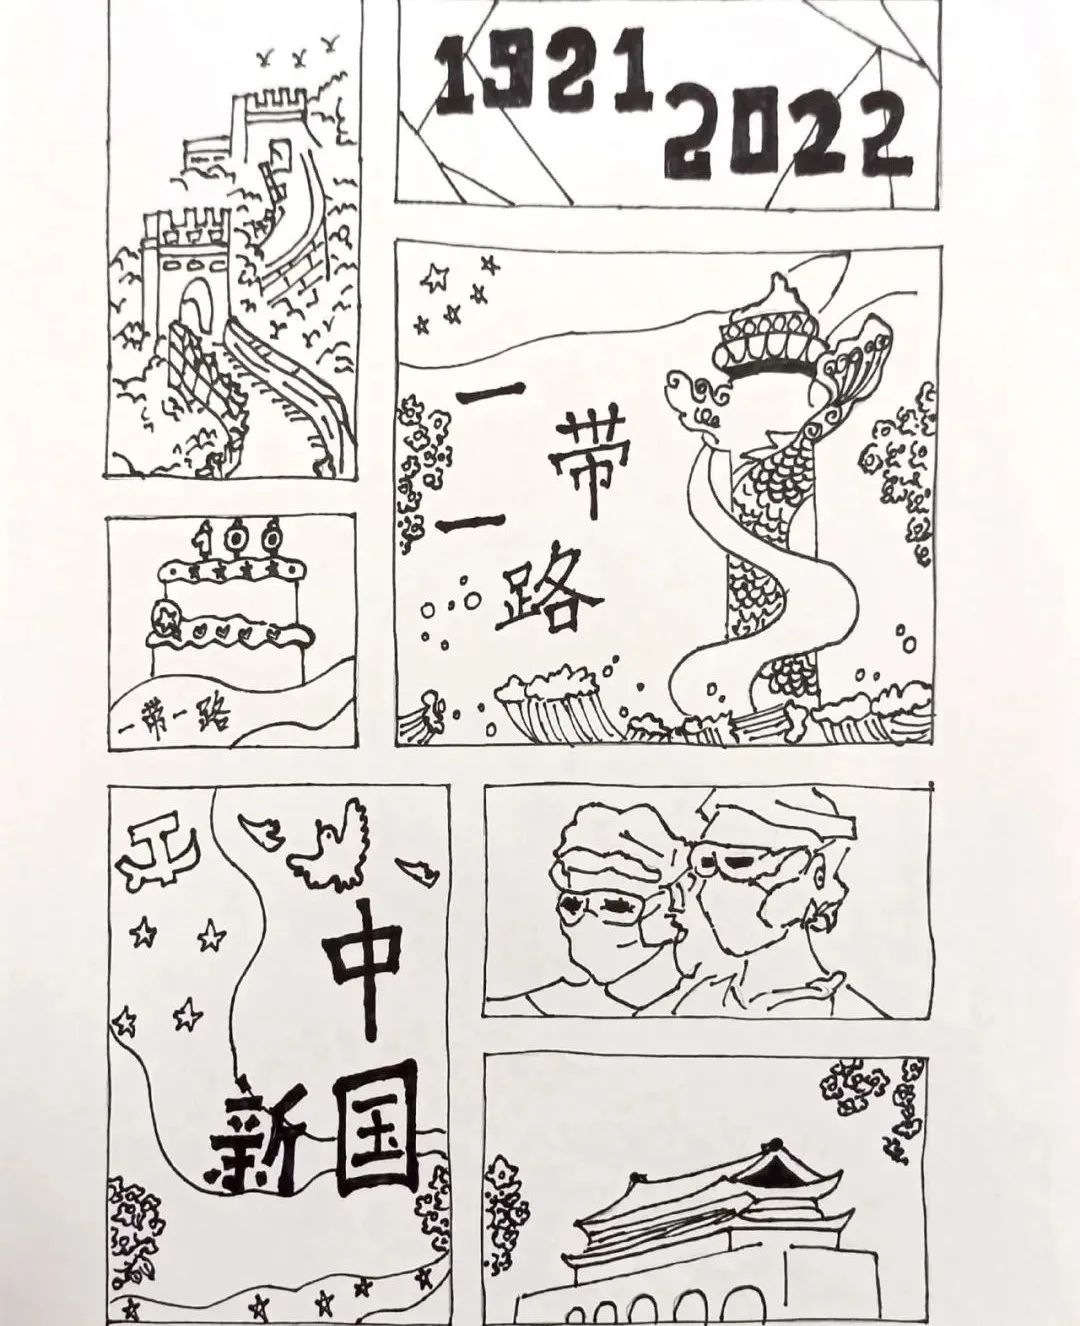 1921
2022
一
带
一
路
100
一带一路
中
国
新